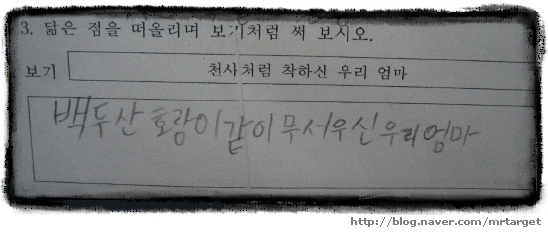 3. 닮은 점을 떠올리며 보기처럼 써 보시오.
보기
천사처럼 착하신 우리 엄마
백두산 호랑이같이 무서우신 우리 엄마
http://blog.naver.com/mrtarget